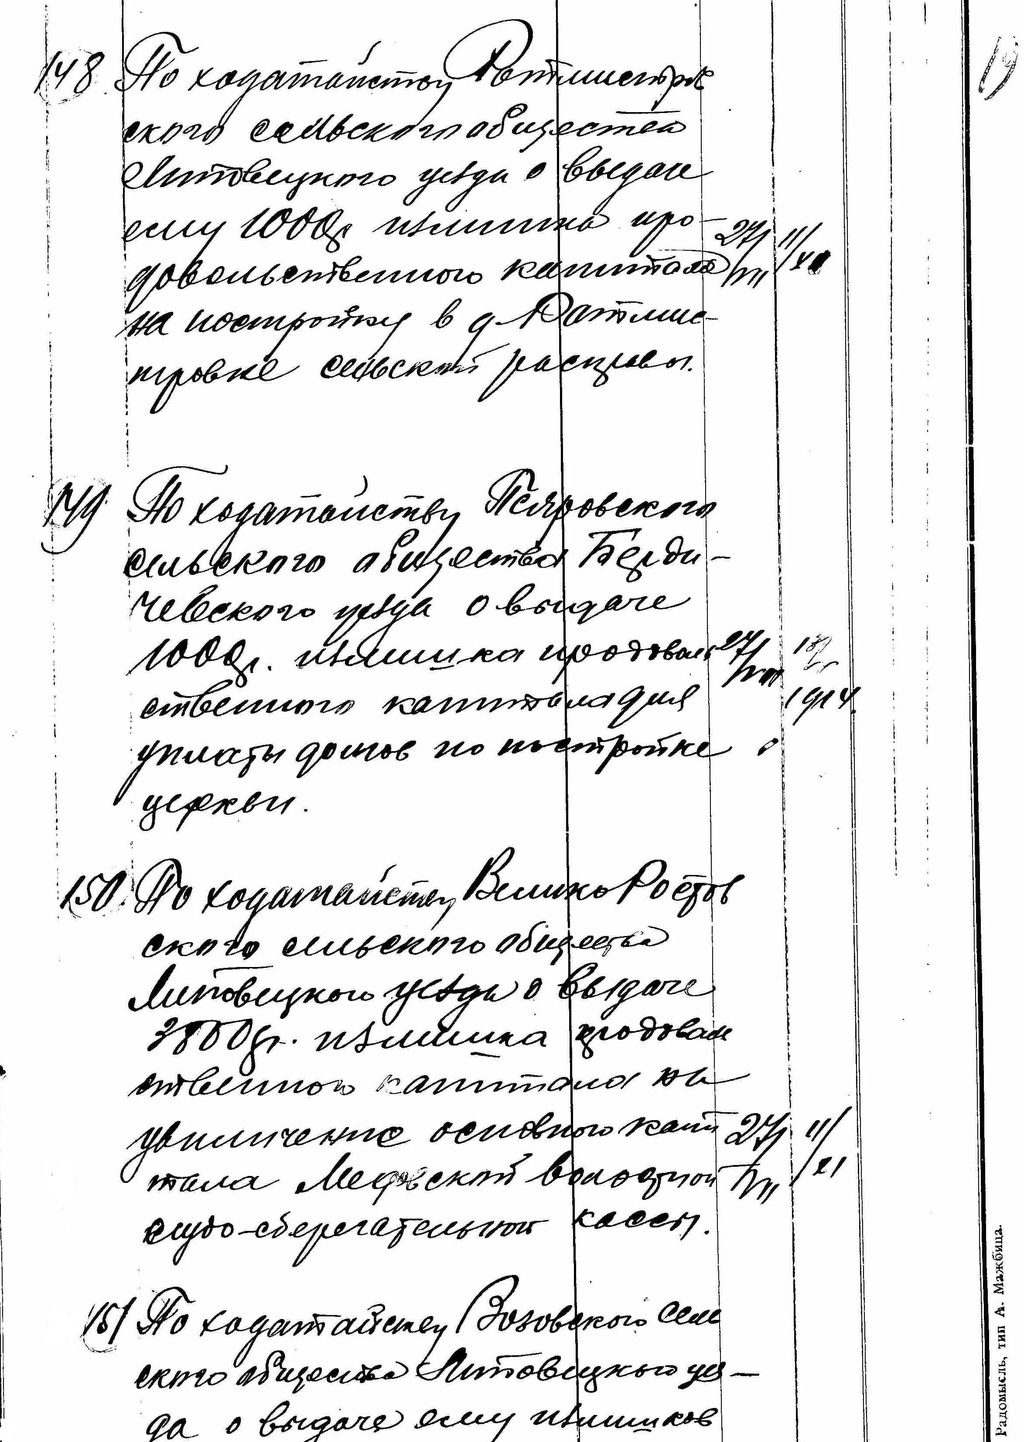 19
148 По ходатайству Ротмистров
ского сельского общества
Липовецкого уезда о выдаче
ему 1000 р излишка про-
довольственного капитала 27/VII 11/XI
на постройку в д. Ротмис-
тровке сельской расправы.
149 По ходатайству Псяровского
сельского общества Берди-
чевского уезда о выдаче
1000 р. излишка продоволь 27/VII
ственного капитала для 1914
уплаты долгов по постройке
церкви.
150 По ходатайству Велико Ростов
ского сельского общества
Липовецкого уезда о выдаче
р. излишка продоволь
ственного капитала на
увеличение основного капи 27/VII 11/XI
тала волостной
ссудо-сберегательной кассы.
151 По ходатайству Возовского сель
ского общества Липовецкого уез-
да о выдаче ему излишков
Радомысль, тип А. Мажбица.